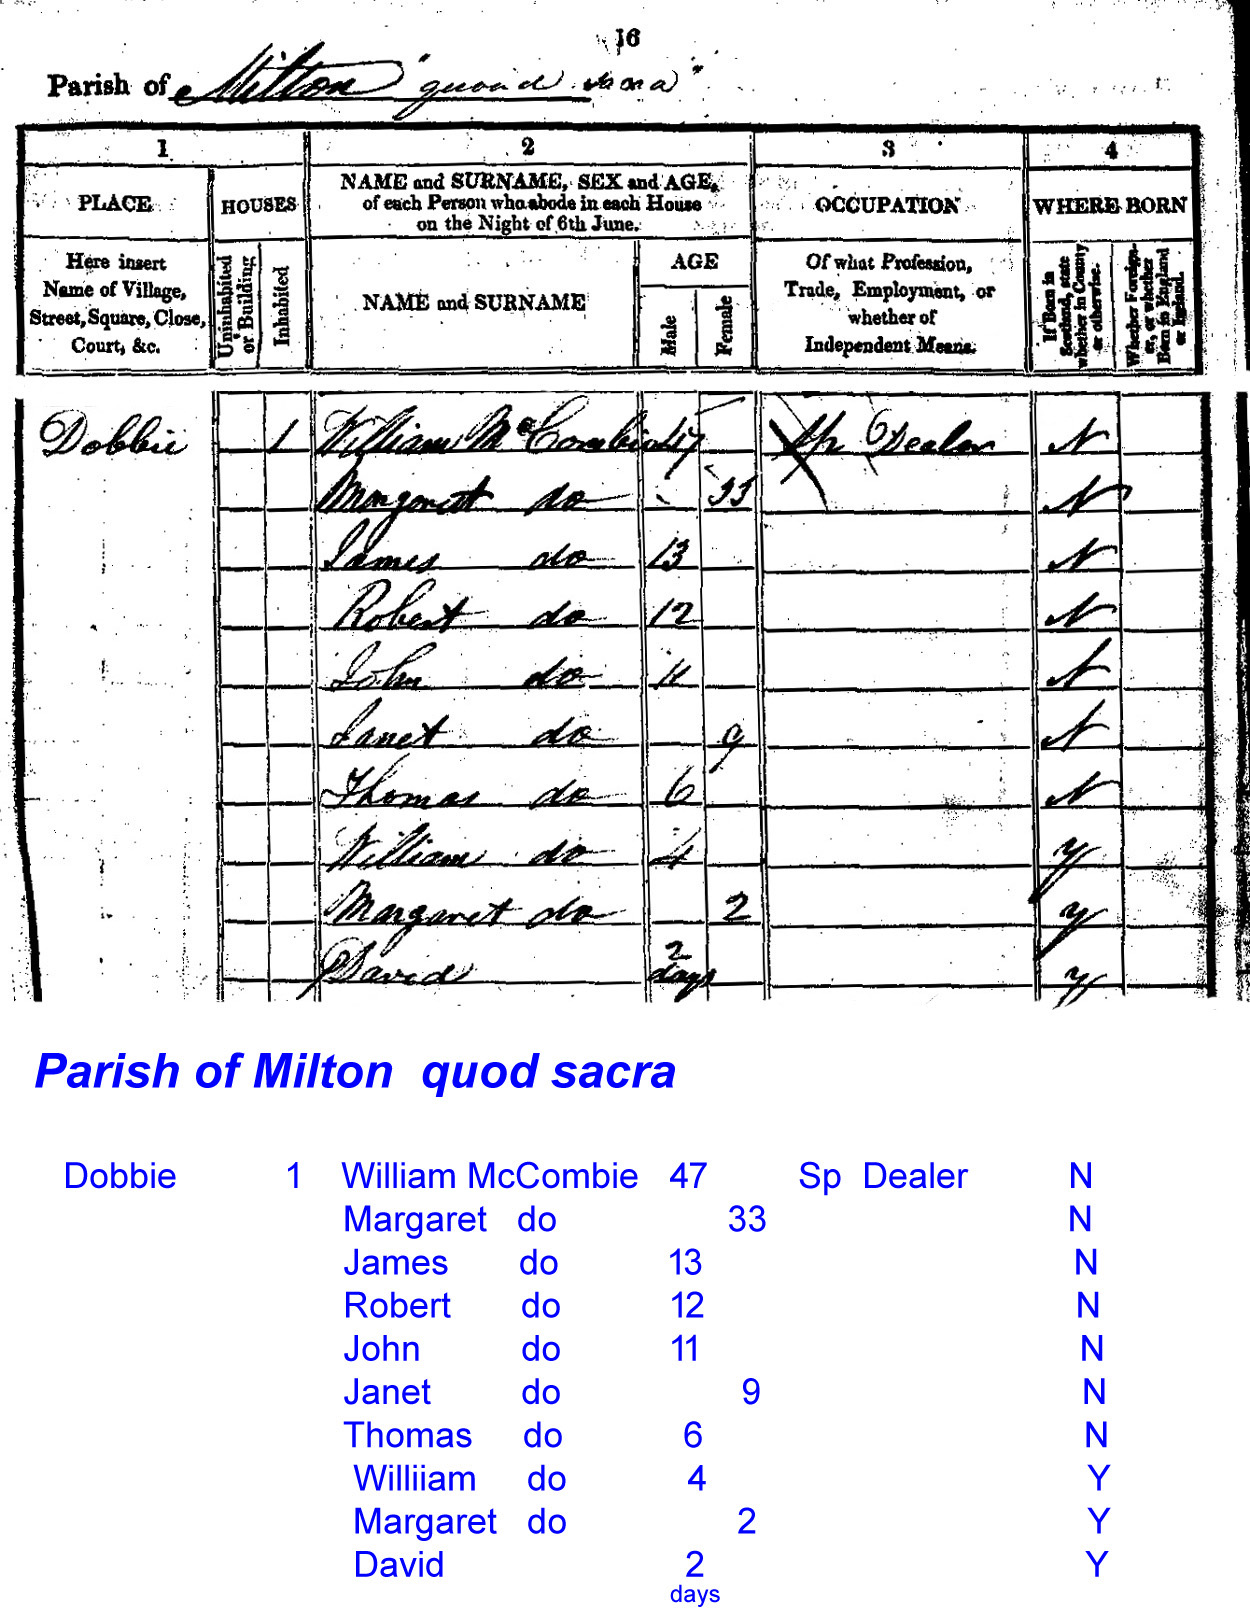 16
Parish of Milton "quoad sacra"
1 2 3 4
PLACE HOUSES NAME and SURNAME, SEX and AGE, of each Person who abode in each House on the Night of 6th June. OCCUPATION WHERE BORN
Here insert Name of Village, Street, Square, Close, Court, &c.
Uninhabited or Building
Inhabited
NAME and SURNAME
AGE
Male
Female
Of what Profession, Trade, Employment, or whether of Independent Means.
If Born in Scotland, state whether in County or otherwise.
Whether Foreigner, or whether Born in England or Ireland.
Dobbie 1 William McCombie 47 Sp Dealer N
Margaret do 33 N
James do 13 N
Robert do 12 N
John do 11 N
Janet do 9 N
Thomas do 6 N
William do 4 y
Margaret do 2 y
David 2 days y
Parish of Milton quod sacra
Dobbie 1 William McCombie 47 Sp Dealer N
Margaret do 33 N
James do 13 N
Robert do 12 N
John do 11 N
Janet do 9 N
Thomas do 6 N
Williiam do 4 Y
Margaret do 2 Y
David 2 Y
days